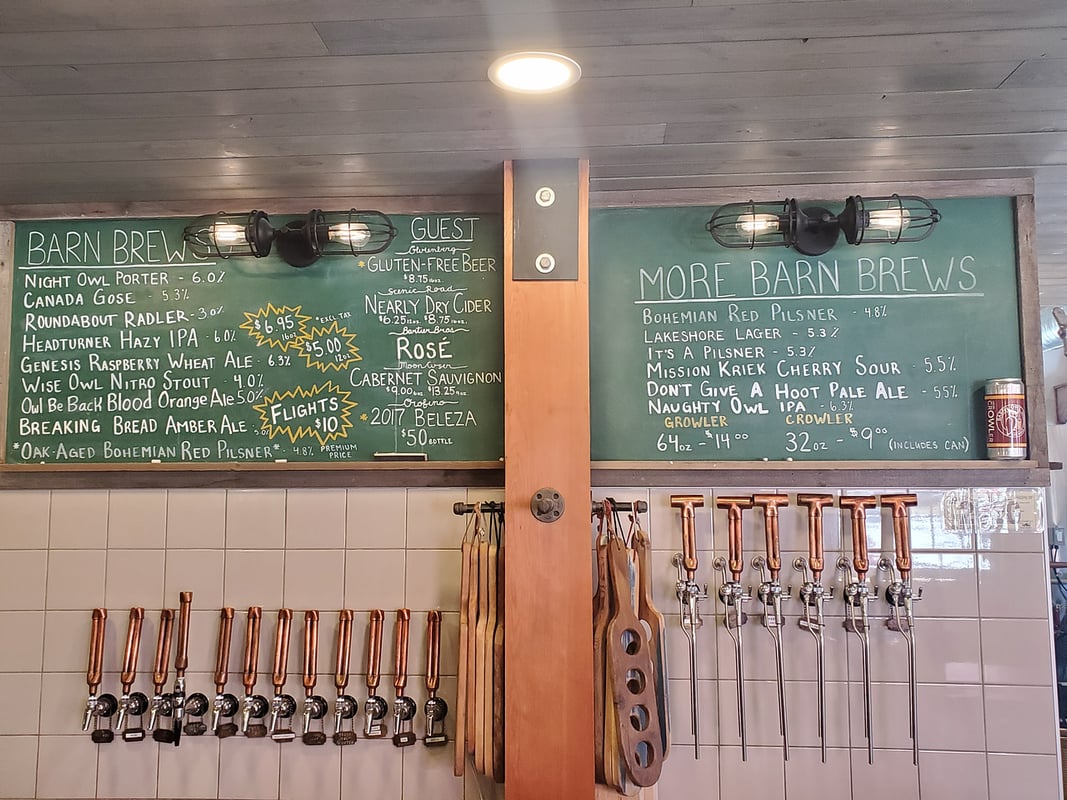 BARN BREWS
NIGHT OWL PORTER - 6.0%
CANADA GOSE - 5.3%
ROUNDABOUT RADLER - 3.0%
HEADTURNER HAZY IPA - 6.0%
GENESIS RASPBERRY WHEAT ALE - 6.3%
WISE OWL NITRO STOUT - 4.0%
Owl Be Back Blood Orange Ale 5.0%
BREAKING BREAD AMBER ALE -
*OAK-AGED BOHEMIAN RED PILSNER* - 4.8% PREMIUM
PRICE
$6.95
16oz
*EXCL TAX
$5.00
12oz
FLIGHTS
$10
GUEST
*GLUTEN-FREE BEER
$8.75 16oz.
Scenic Road
NEARLY DRY CIDER
$6.25 12oz. $8.75 16oz.
ROSÉ
CABERNET SAUVIGNON
$9.00 6oz $13.25 9oz
Orofino
*2017 BELEZA
$50 BOTTLE
MORE BARN BREWS
BOHEMIAN RED PILSNER - 4.8%
LAKESHORE LAGER - 5.3%
IT'S A PILSNER - 5.3%
MISSION KRIEK CHERRY SOUR - 5.5%
DON'T GIVE A HOOT PALE ALE - 5.5%
NAUGHTY OWL IPA - 6.3%
GROWLER CROWLER
64oz - $14.00 32oz - $9.00 (INCLUDES CAN)
CROWLER